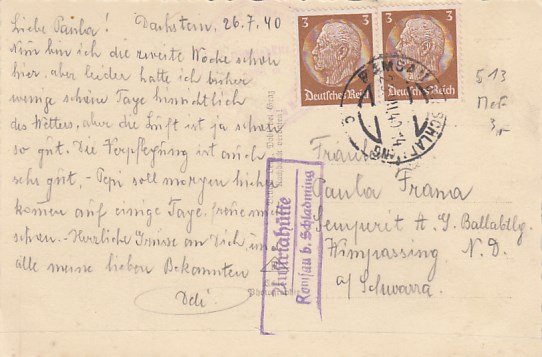 Dachstein, 26.7.40
Liebe Paula!
Nun bin ich die zweite Woche schon
hier, aber leider hatte ich bisher
wenige schöne Tage hinsichtlich
des Wetters, aber die Luft ist ja schon
so gut. Die Verpflegung ist auch
sehr gut, - Pepi soll morgen hierher
kommen auf einige Tage, freue mich
schon. - Herzliche Grüsse an Dich, u.
alle meine lieben Bekannten
3 3
Deutsches Reich Deutsches Reich
RAMSAU
SCHLADMING
513
3,-
Austriahütte
Ramsau b. Schladming
Fräulein
Paula Frana
Semperit A. G. Ballabtlg.
Wimpassing N. D.
a/ Schwarza